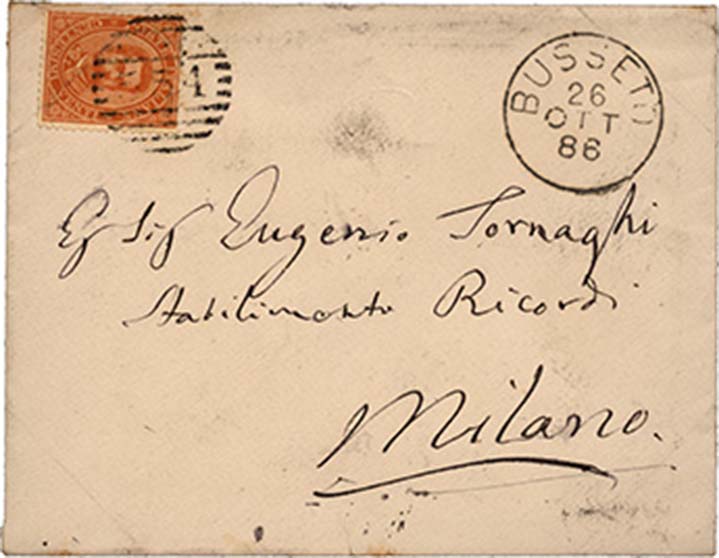 BUSSETO
26
OTT
86
Eg Sig Eugenio Tornaghi
Stabilimento Ricordi
Milano.